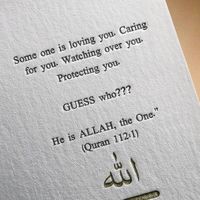 Some one is loving you. Caring
for you. Watching over you.
Protecting you.
GUESS who???
He is ALLAH, the One."
(Quran 112:1)
الله